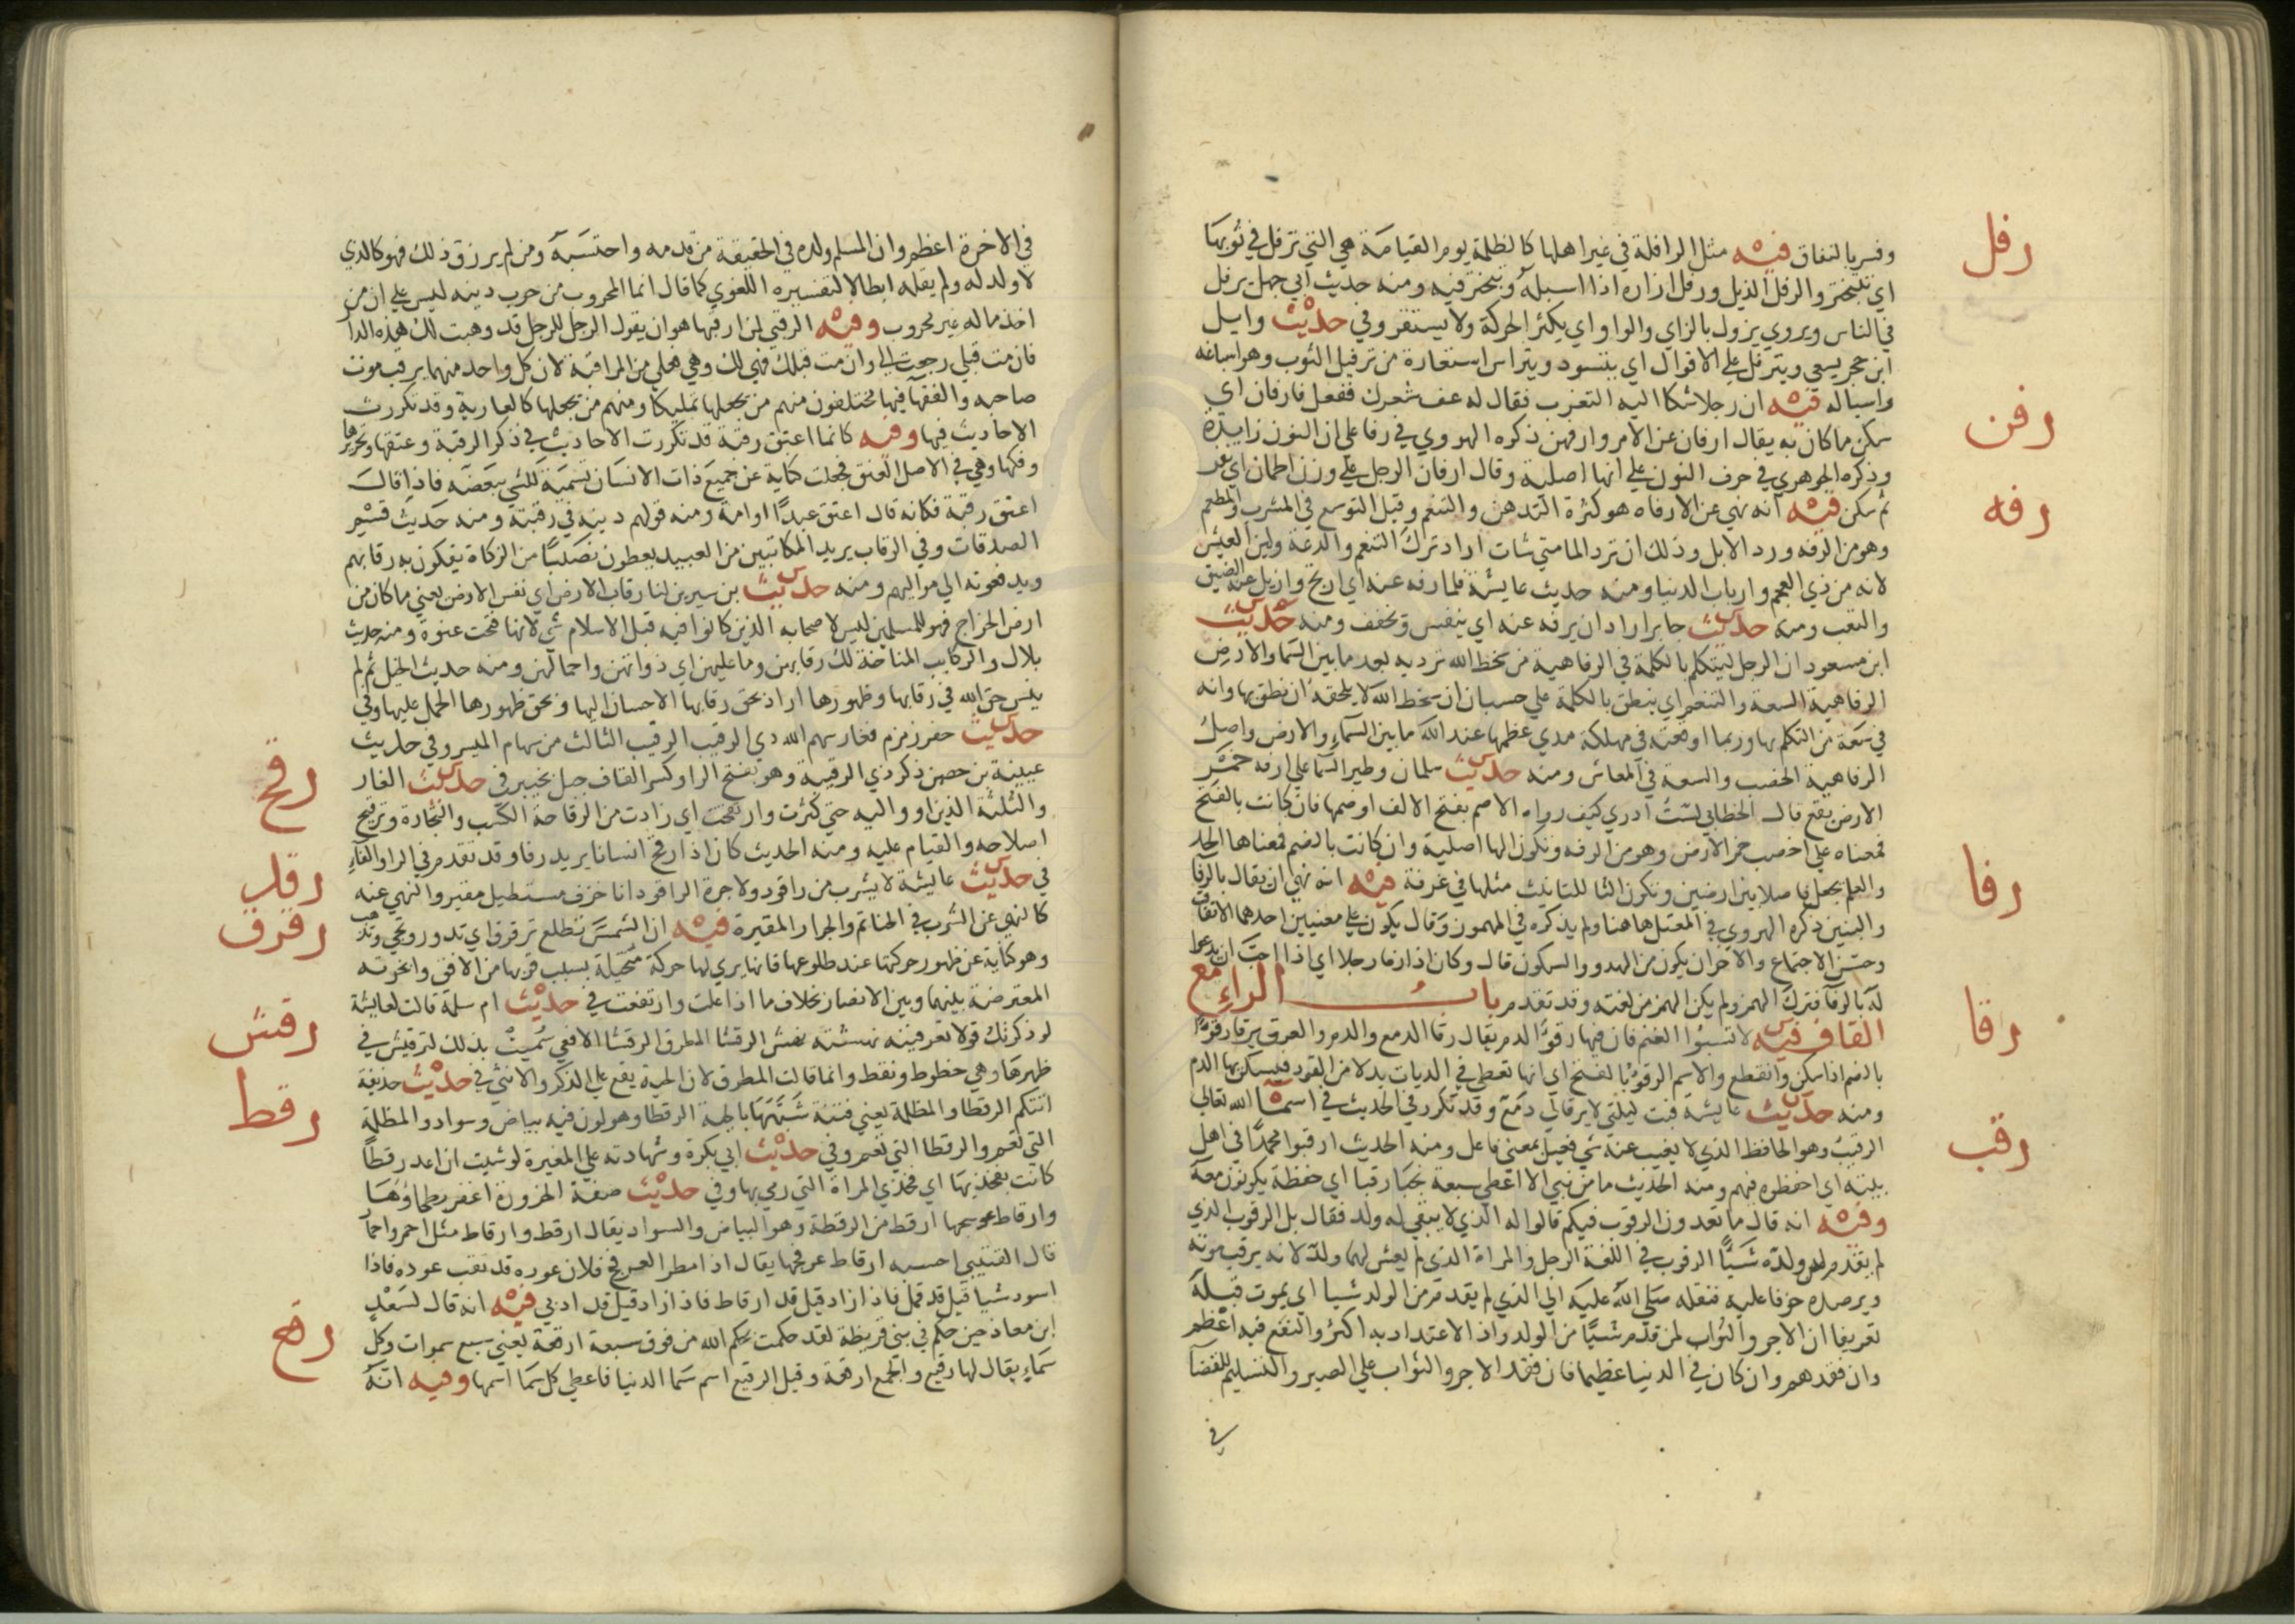 رفل
وفسر بالنفاق فيه مثل الرافلة في غير اهلها كالظلمة يوم القيامة هي التي ترفل في ثوبها
اي تتبختر والرفل الذيل ورفل ازاره اذا اسبله وتبختر فيه ومنه حديث ابي جهل يرفل
في الناس ويروي يزول بالزاي والواو اي يكثر الحركة ولا يستقر وفي حديث وايل
ابن حجر يسعي ويترفل علي الاقوال اي يتسود ويتراس استعارة من ترفيل الثوب وهو اسباغه
رفن
واسباله فيه ان رجلا شكا اليه التعزب فقال له عف شعرك ففعل فارفان اي
سكن ما كان به يقال ارفان عن الامر وارفهن ذكره الهروي في رفا علي ان النون زايدة
وذكره الجوهري في حرف النون علي انها اصلية وقال ارفان الرجل علي وزن اطمان اي نفر
رفه
ثم سكن فيه انه نهي عن الارفاه هو كثرة التدهن والتنعم وقيل التوسع في المشرب والمطعم
وهو من الرفه ورد الابل وذلك ان ترد الما متي شات اراد ترك التنعم والدعة ولين العيش
لانه من زي العجم وارباب الدنيا ومنه حديث عايشة فلما رفه عنه اي اريح وازيل عنه الضيق
والتعب ومنه حديث جابر اراد ان يرفه عنه اي ينفس ويخفف ومنه حديث
ابن مسعود ان الرجل ليتكلم بالكلمة في الرفاهية من سخط الله ترديه بعد ما بين السما والارض
الرفاهية السعة والتنعم اي ينطق بالكلمة علي حسبان ان سخط الله لا يلحقه ان نطق بها وانه
في سعة من التكلم بها وربما اوقعته في مهلكة مدي عظمها عند الله ما بين السماء والارض واصل
الرفاهية الخصب والسعة في المعاش ومنه حديث سلمان وطير السما علي ارفه خمر
الارض يقع قال الخطابي لست ادري كيف رواه الاصم بفتح الالف او ضمها فان كانت بالفتح
فمعناه علي اخصب خمر الارض وهو من الرفه وتكون الها اصلية وان كانت بالضم فمعناها الحد
رفا
والعلم يجعل فاصلا بين ارضين وتكون التا للتانيث مثلها في غرفة فيه انه نهي ان يقال بالرفا
والبنين ذكره الهروي في المعتل هاهنا ولم يذكره في المهموز وقال يكون علي معنيين احدهما الاتفاق
وحسن الاجتماع والاخر ان يكون من الهدو والسكون قال وكان اذا رفا رجلا اي اذا احب ان يدعو
له بالرفا فترك الهمز ولم يكن الهمز من لغته وقد تقدم باب الراء مع
رقا
القاف فيه لا تسبوا الغنم فان فيها رقوء الدم يقال رقا الدمع والدم والعرق يرقا رقوءا
بالضم اذا سكن وانقطع والاسم الرقوء بالفتح اي انها تعطي في الديات بدلا من القود فيسكن بها الدم
رقب
ومنه حديث عايشة فبت ليلتي لا يرقالي دمع وقد تكرر في الحديث في اسما الله تعالي
الرقيب وهو الحافظ الذي لا يغيب عنه شي فعيل بمعني فاعل ومنه الحديث ارقبوا محمدا في اهل
بيته اي احفظوه فيهم ومنه الحديث ما من نبي الا اعطي سبعة نجبا رقبا اي حفظة يكونون معه
وفيه انه قال ما تعدون الرقوب فيكم قالوا له الذي لا يبقي له ولد فقال بل الرقوب الذي
لم يقدم من ولده شيئا الرقوب في اللغة الرجل والمراة الذي لم يعش لهما ولد لانه يرقب موته
ويرصده خوفا عليه فنقله صلي الله عليه الي الذي لم يقدم من الولد شيا اي يموت قبله
تعريفا ان الاجر والثواب لمن قدم شيئا من الولد وان الاعتداد به اكثر والنفع فيه اعظم
وان فقدهم وان كان في الدنيا عظيما فان فقد الاجر والثواب علي الصبر والتسليم للقضا
في
في الاخرة اعظم وان المسلم ولده في الحقيقة من قدمه واحتسبه ومن لم يرزق ذلك فهو كالذي
لا ولد له ولم يقله ابطالا لتفسيره اللغوي كما قال انما المحروب من حرب دينه ليس علي ان من
اخذ ماله غير محروب وفيه الرقبي لمن ارقبها هو ان يقول الرجل للرجل قد وهبت لك هذه الدار
فان مت قبلي رجعت الي وان مت قبلك فهي لك وهي فعلي من المراقبة لان كل واحد منهما يرقب موت
صاحبه والفقها فيها مختلفون منهم من يجعلها تمليكا ومنهم من يجعلها كالعارية وقد تكررت
الاحاديث فيها وفيه كانما اعتق رقبة قد تكررت الاحاديث في ذكر الرقبة وعتقها وتحريرها
وفكها وهي في الاصل العنق فجعلت كناية عن جميع ذات الانسان تسمية للشي ببعضه فاذا قال
اعتق رقبة فكانه قال اعتق عبدا او امة ومنه قولهم دينه في رقبته ومنه حديث قسم
الصدقات وفي الرقاب يريد المكاتبين من العبيد يعطون نصيبا من الزكاة يفكون به رقابهم
ويدفعونه الي مواليهم ومنه حديث بن سيرين لنا رقاب الارض اي نفس الارض يعني ما كان من
ارض الخراج فهو للمسلمين ليس لاصحابه الذين كانوا فيه قبل الاسلام شي لانها فتحت عنوة ومنه حديث
بلال والركايب المناخة لك رقابهن وما عليهن اي ذواتهن واحمالهن ومنه حديث الخيل ثم لم
ينس حق الله في رقابها وظهورها اراد بحق رقابها الاحسان اليها وبحق ظهورها الحمل عليها وفي
حديث حفر زمزم فغار سهم الله ذي الرقيب الرقيب الثالث من سهام الميسر وفي حديث
رقح
عيينة بن حصن ذكر ذي الرقيبة وهو بفتح الرا وكسر القاف جبل بخيبر في حديث الغار
والثلثة الذين اووا اليه حتي كثرت وارتقحت اي زادت من الرقاحة الكسب والتجارة وترقيح
اصلاحه والقيام عليه ومنه الحديث كان اذا رقح انسانا يريد رفا وقد تقدم في الرا والفاء
رقد
في حديث عايشة لا يشرب من راقود ولا جرة الراقود انا خزف مستطيل مقير والنهي عنه
رقرق
كالنهي عن الشرب في الحناتم والجرار المقيرة فيه ان الشمس تطلع ترقرق اي تدور وتجي وتذهب
وهو كناية عن ظهور حركتها عند طلوعها فانها يري لها حركة متخيلة بسبب قربها من الافق وابخرته
رقش
المعترضة بينها وبين الابصار بخلاف ما اذا علت وارتفعت في حديث ام سلمة قالت لعايشة
لو ذكرتك قولا تعرفينه نهشته نهش الرقشا المطرق الرقشا الافعي سميت بذلك لترقيش في
رقط
ظهرها وهي خطوط ونقط وانما قالت المطرق لان الحية يقع علي الذكر والانثي في حديث حذيفة
اتتكم الرقطا والمظلمة يعني فتنة شبهها بالحية الرقطا وهو لون فيه بياض وسواد والمظلمة
التي تعم والرقطا التي تعم وفي حديث ابي بكرة وشهادته علي المغيرة لو شيت ان اعد رقطا
كانت بفخذيها اي فخذي المراة التي رمي بها وفي حديث صفة الحزورة اغفر بطحاؤها
وارقاط عوسجها ارقط من الرقطة وهو البياض والسواد يقال ارقط وارقاط مثل احمر واحمار
قال القتيبي احسبه ارقاط عرفجها يقال اذا مطر العرفج فلان عوده قد ثقب عوده فاذا
رقع
اسود شيا قيل قد قمل فاذا زاد قيل قد ارقاط فاذا زاد قيل قد ادبي فيه انه قال لسعد
ابن معاذ حين حكم في بني قريظة لقد حكمت بحكم الله من فوق سبعة ارقعة يعني سبع سموات وكل
سماء يقال لها رقيع والجمع ارقعة وقيل الرقيع اسم سما الدنيا فاعطي كل سما اسمها وفيه انه